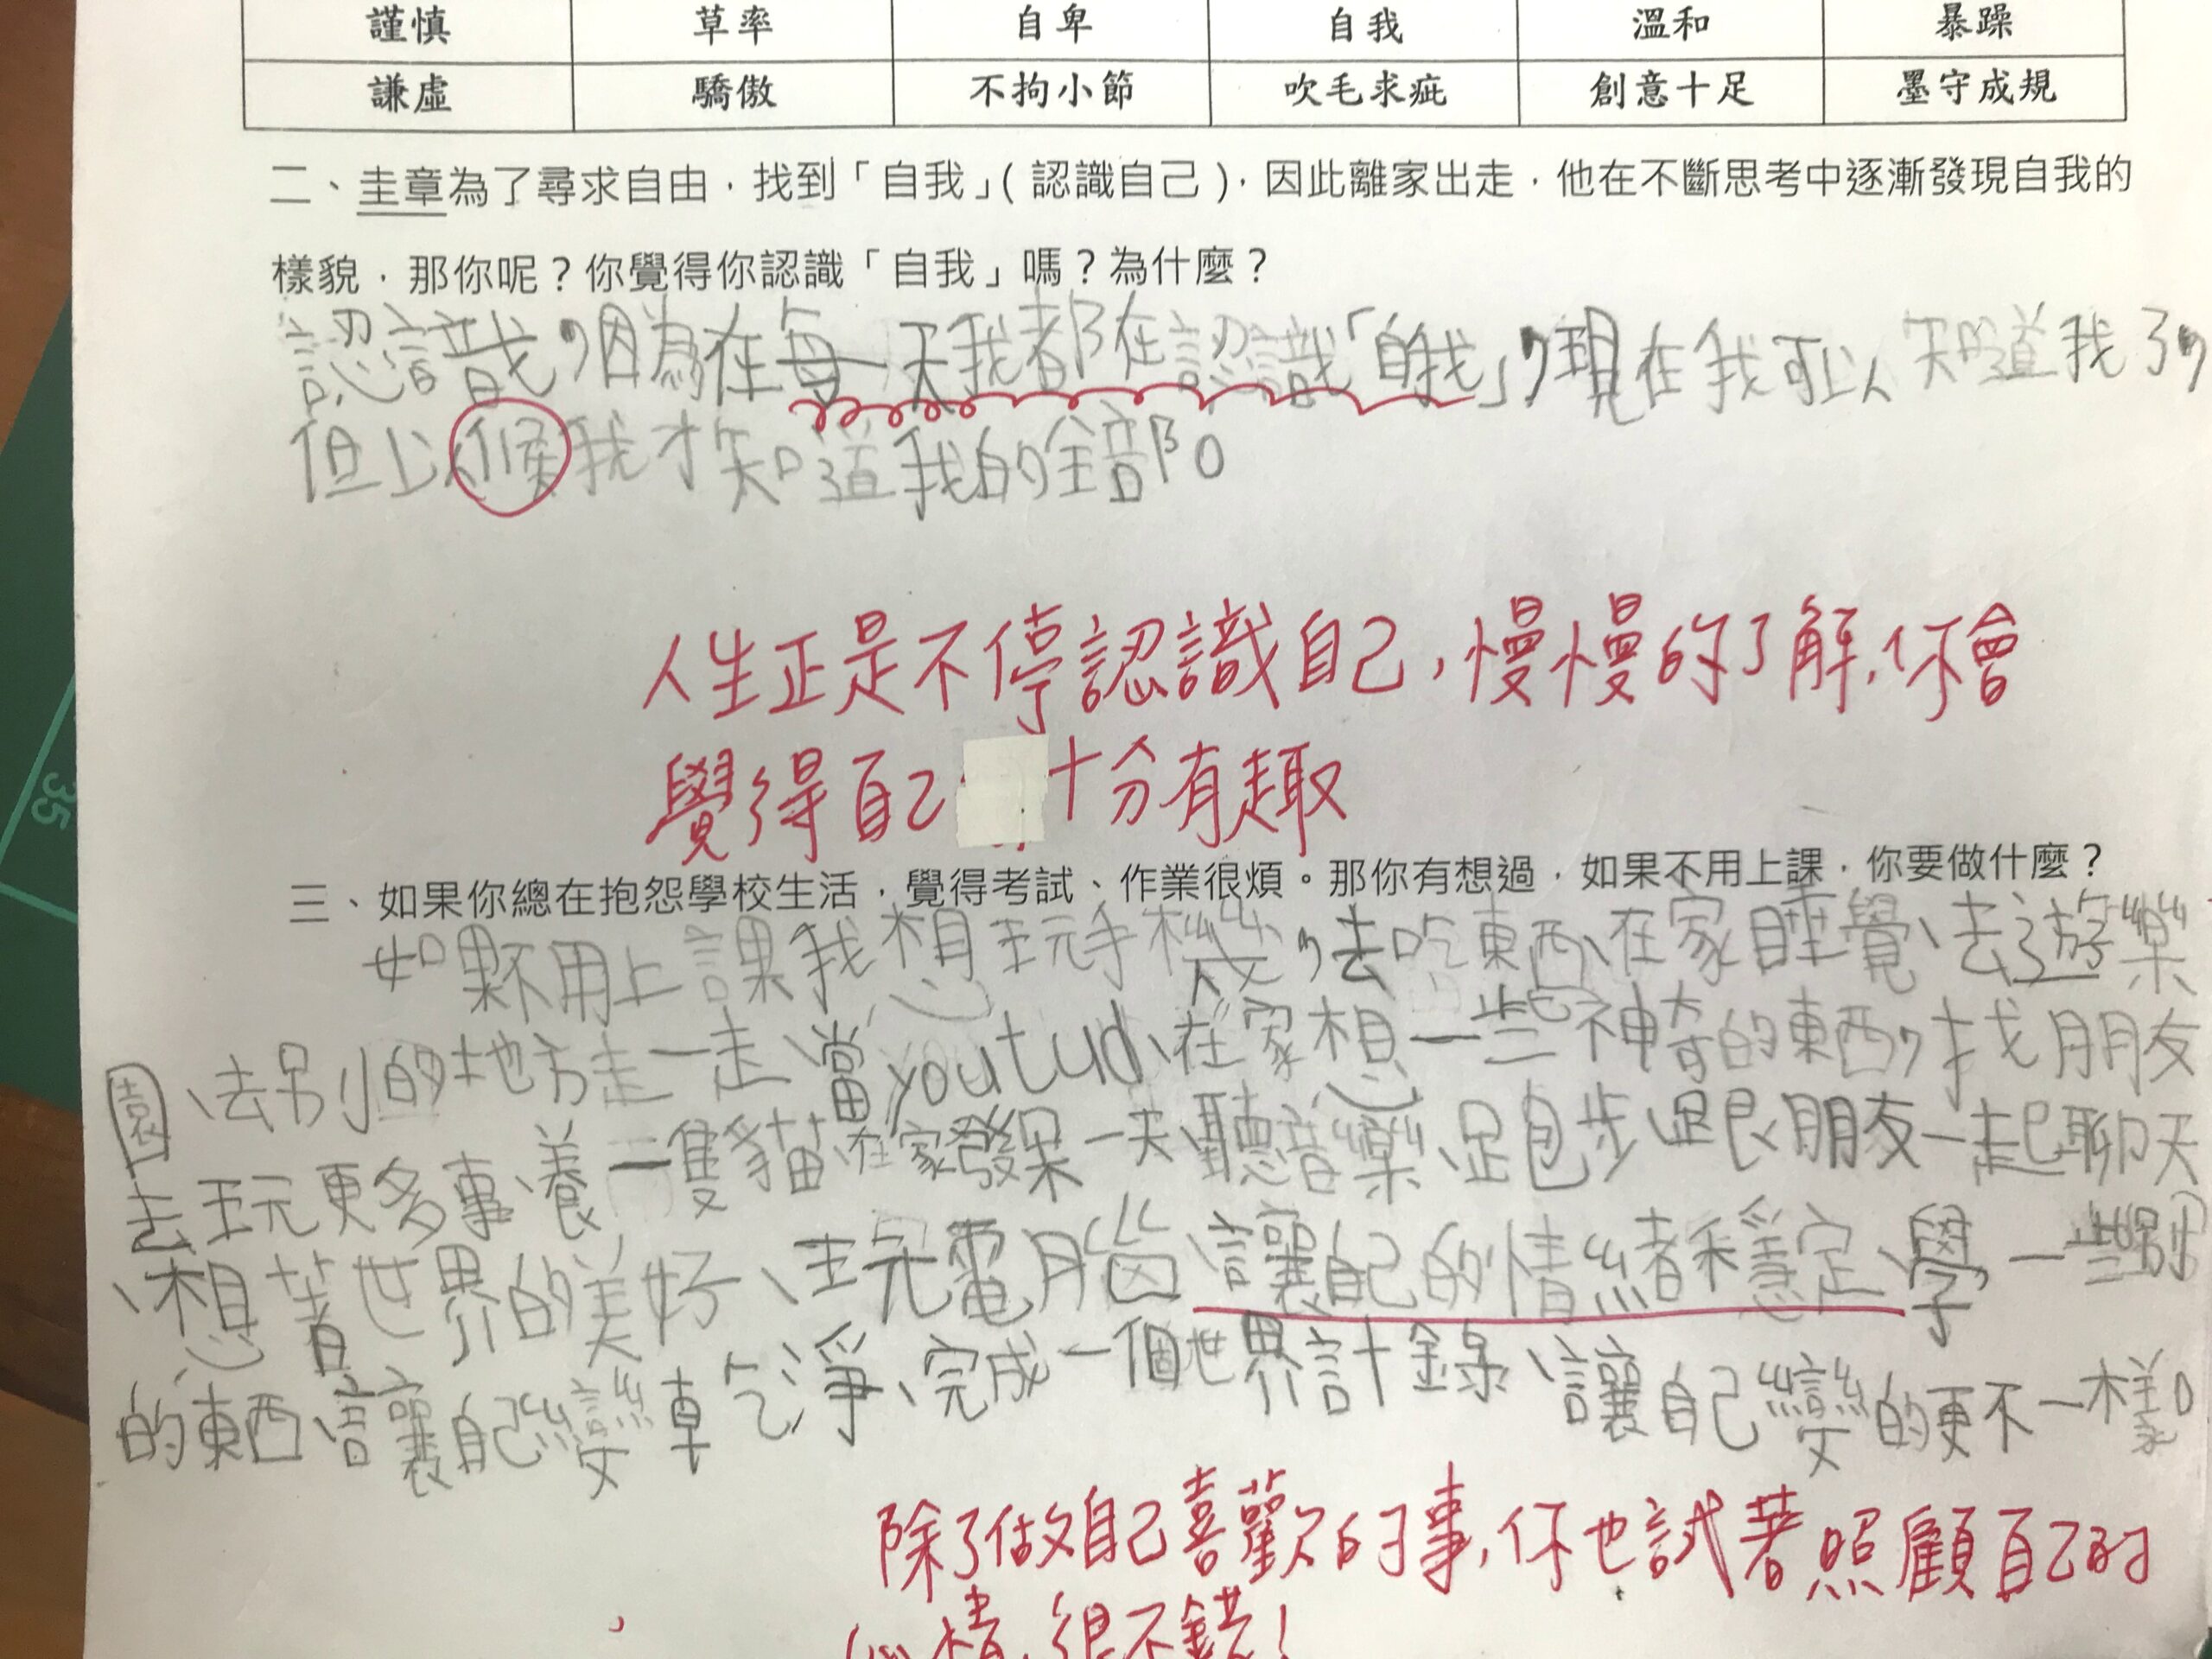 謹慎 草率 自卑 自我 溫和 暴躁
謙虛 驕傲 不拘小節 吹毛求疵 創意十足 墨守成規
二、圭章為了尋求自由，找到「自我」(認識自己)，因此離家出走，他在不斷思考中逐漸發現自我的
樣貌，那你呢？你覺得你認識「自我」嗎？為什麼？
認識，因為在每一天我都在認識「自我」，現在我可以知道我了，
但以候我才知道我的全部。
人生正是不停認識自己，慢慢的了解，你會
覺得自己 十分有趣
三、如果你總在抱怨學校生活，覺得考試、作業很煩。那你有想過，如果不用上課，你要做什麼？
如果不用上課我想玩手機，去吃東西、在家睡覺、去遊樂
園、去別的地方走一走、當youtud、在家想一些神奇的東西，找朋友
去玩更多事、養一隻貓、在家發呆一天、聽音樂、跑步、跟朋友一起聊天
、想著世界的美好、玩電腦、讓自己的情緒穩定、學一些別
的東西、讓自己變乾淨、完成一個世界計錄、讓自己變的更不一樣。
除了做自己喜歡的事，你也試著照顧自己的
心情，很不錯！
35